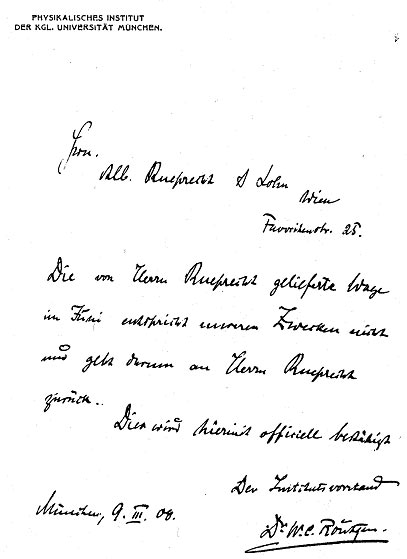 PHYSIKALISCHES INSTITUT
DER KGL. UNIVERSITÄT MÜNCHEN.
Hrn.
Alb. Rueprecht & Sohn
Wien
Favoritenstr. 25.
Die von Herrn Rueprecht gelieferte Wage
im Juni entspricht unseren Zwecken nicht
und geht darum an Herrn Rueprecht
zurück.
Dies wird hiermit officiell bestätigt
Der Institutsvorstand
München, 9. III. 08.
Dr W. C. Röntgen.